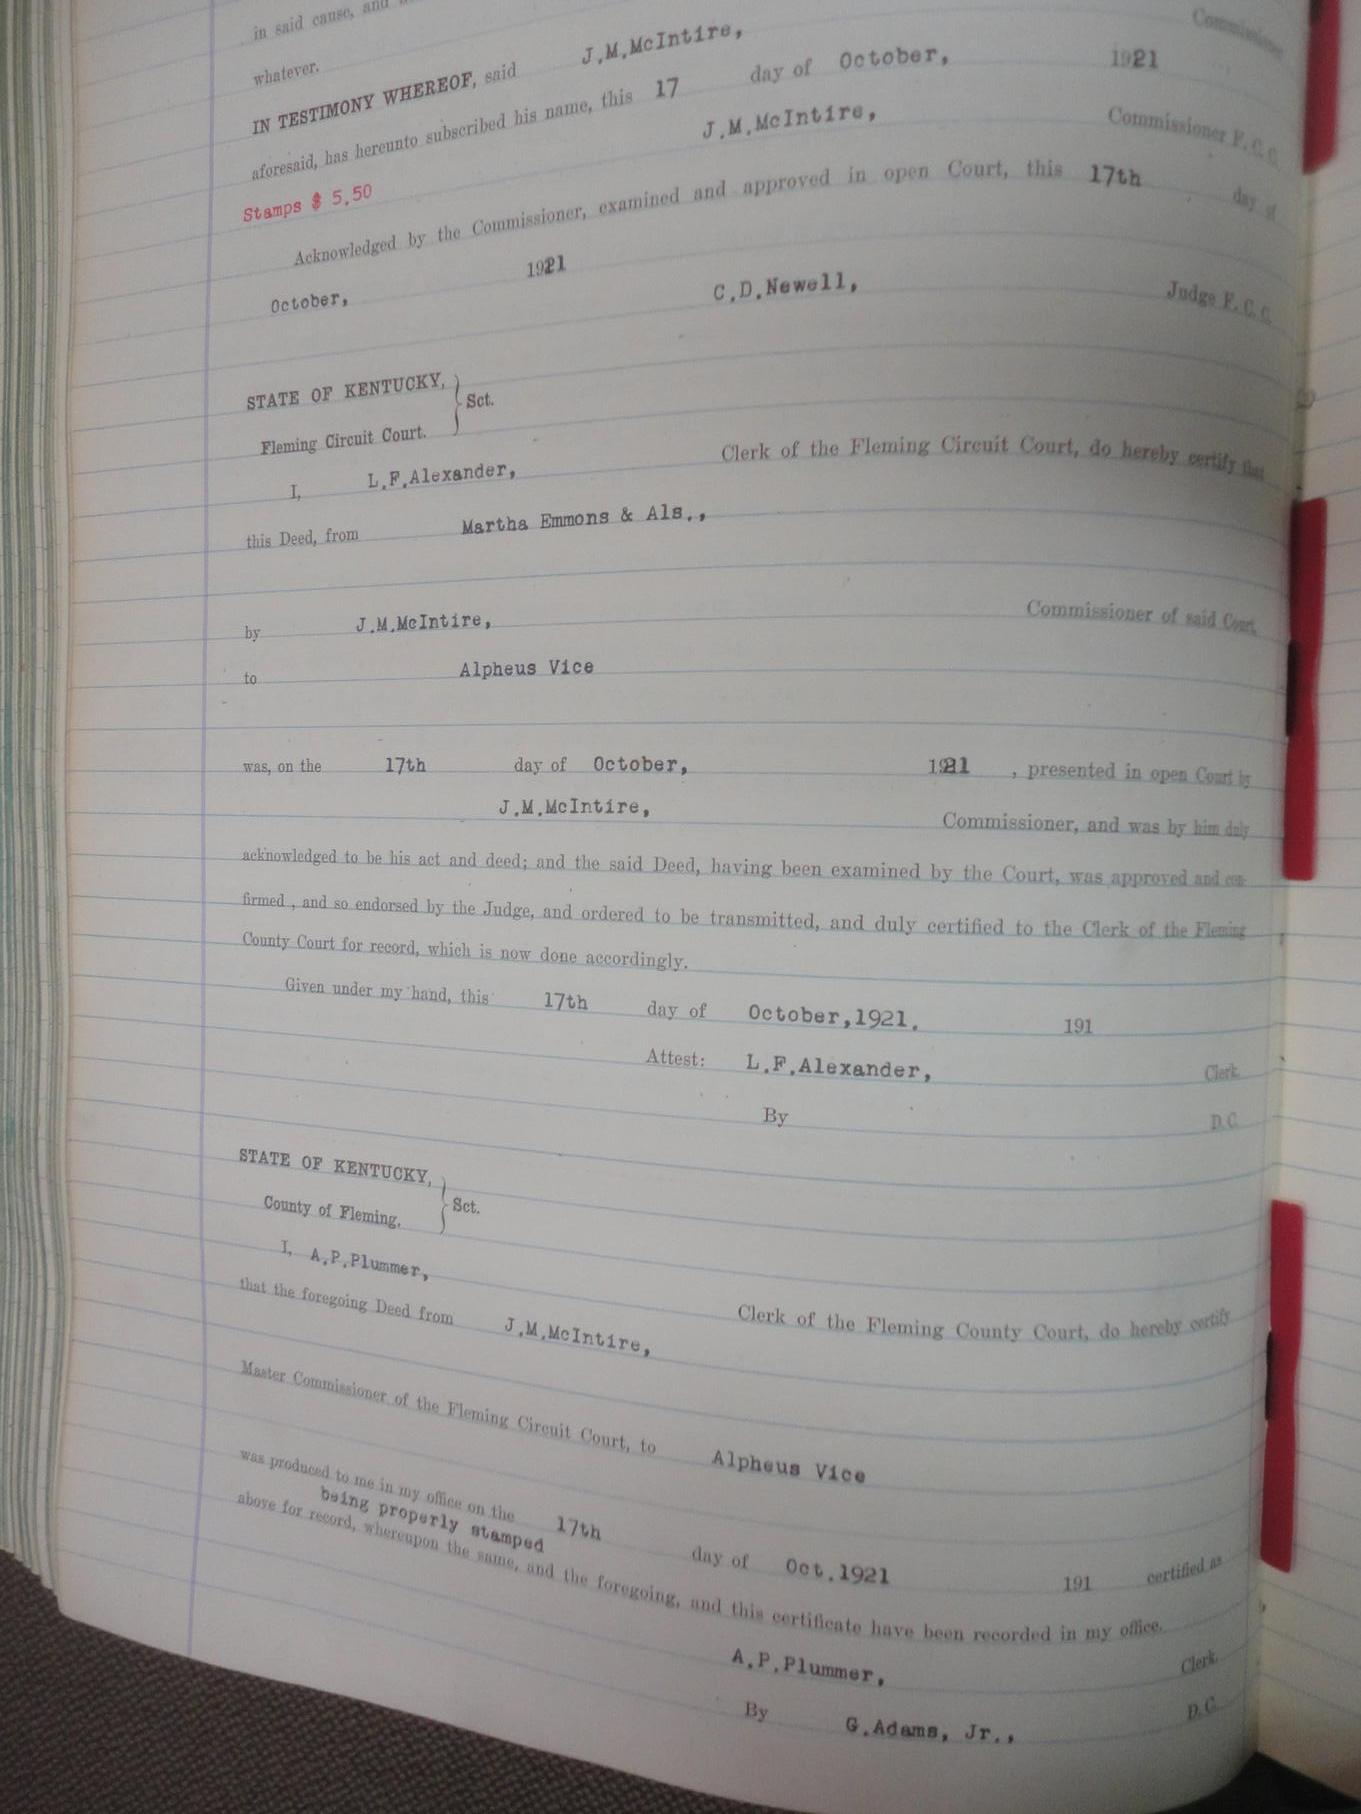 in said cause, and
whatever.
IN TESTIMONY WHEREOF, said J.M.McIntire, Commissioner
aforesaid, has hereunto subscribed his name, this 17 day of October, 1921
J.M.McIntire, Commissioner F. C. C.
Stamps $ 5.50
Acknowledged by the Commissioner, examined and approved in open Court, this 17th day of
October, 1921
C.D.Newell, Judge F. C. C.
STATE OF KENTUCKY, } Sct.
Fleming Circuit Court.
I, L.F.Alexander, Clerk of the Fleming Circuit Court, do hereby certify that
this Deed, from Martha Emmons & Als.,
by J.M.McIntire, Commissioner of said Court,
to Alpheus Vice
was, on the 17th day of October, 1921 , presented in open Court by
J.M.McIntire, Commissioner, and was by him duly
acknowledged to be his act and deed; and the said Deed, having been examined by the Court, was approved and con-
firmed , and so endorsed by the Judge, and ordered to be transmitted, and duly certified to the Clerk of the Fleming
County Court for record, which is now done accordingly.
Given under my hand, this 17th day of October,1921. 191
Attest: L.F.Alexander, Clerk
By D.C.
STATE OF KENTUCKY, } Sct.
County of Fleming.
I, A.P.Plummer, Clerk of the Fleming County Court, do hereby certify
that the foregoing Deed from J.M.McIntire,
Master Commissioner of the Fleming Circuit Court, to Alpheus Vice
was produced to me in my office on the 17th day of Oct.1921 191 certified as
being properly stamped
above for record, whereupon the same, and the foregoing, and this certificate have been recorded in my office.
A.P.Plummer, Clerk.
By G.Adams, Jr., D.C.